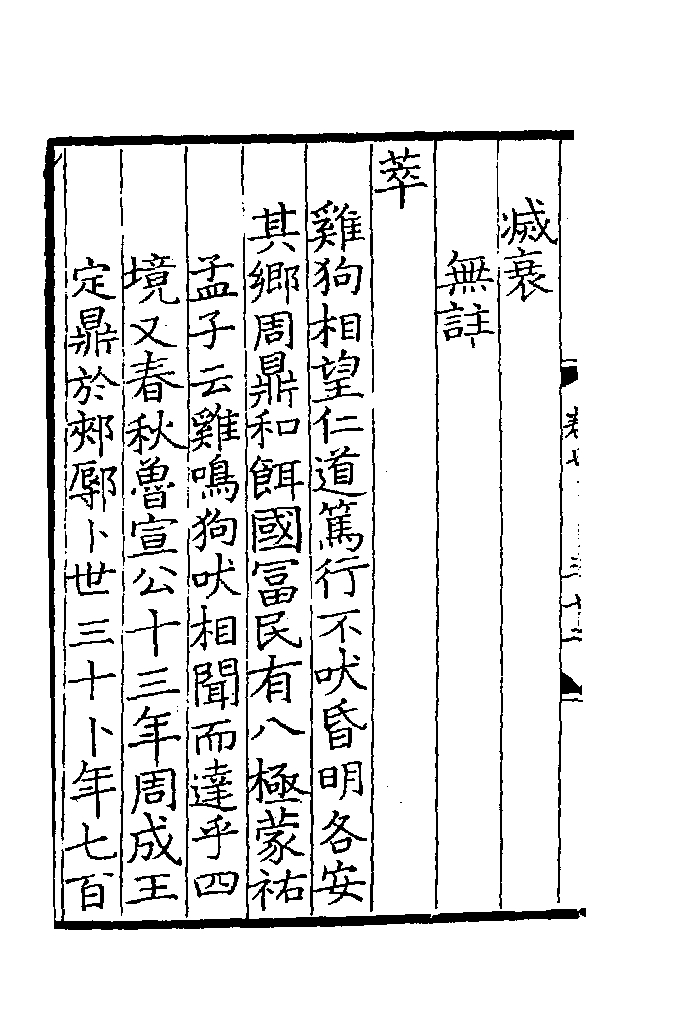 滅衰
無註
萃
雞狗相望仁道篤行不吠昏明各安
其鄉周鼎和餌國冨民有八極蒙祐
孟子云雞鳴狗吠相聞而達乎四
境又春秋魯宣公十三年周成王
定鼎於郟鄏卜世三十卜年七百